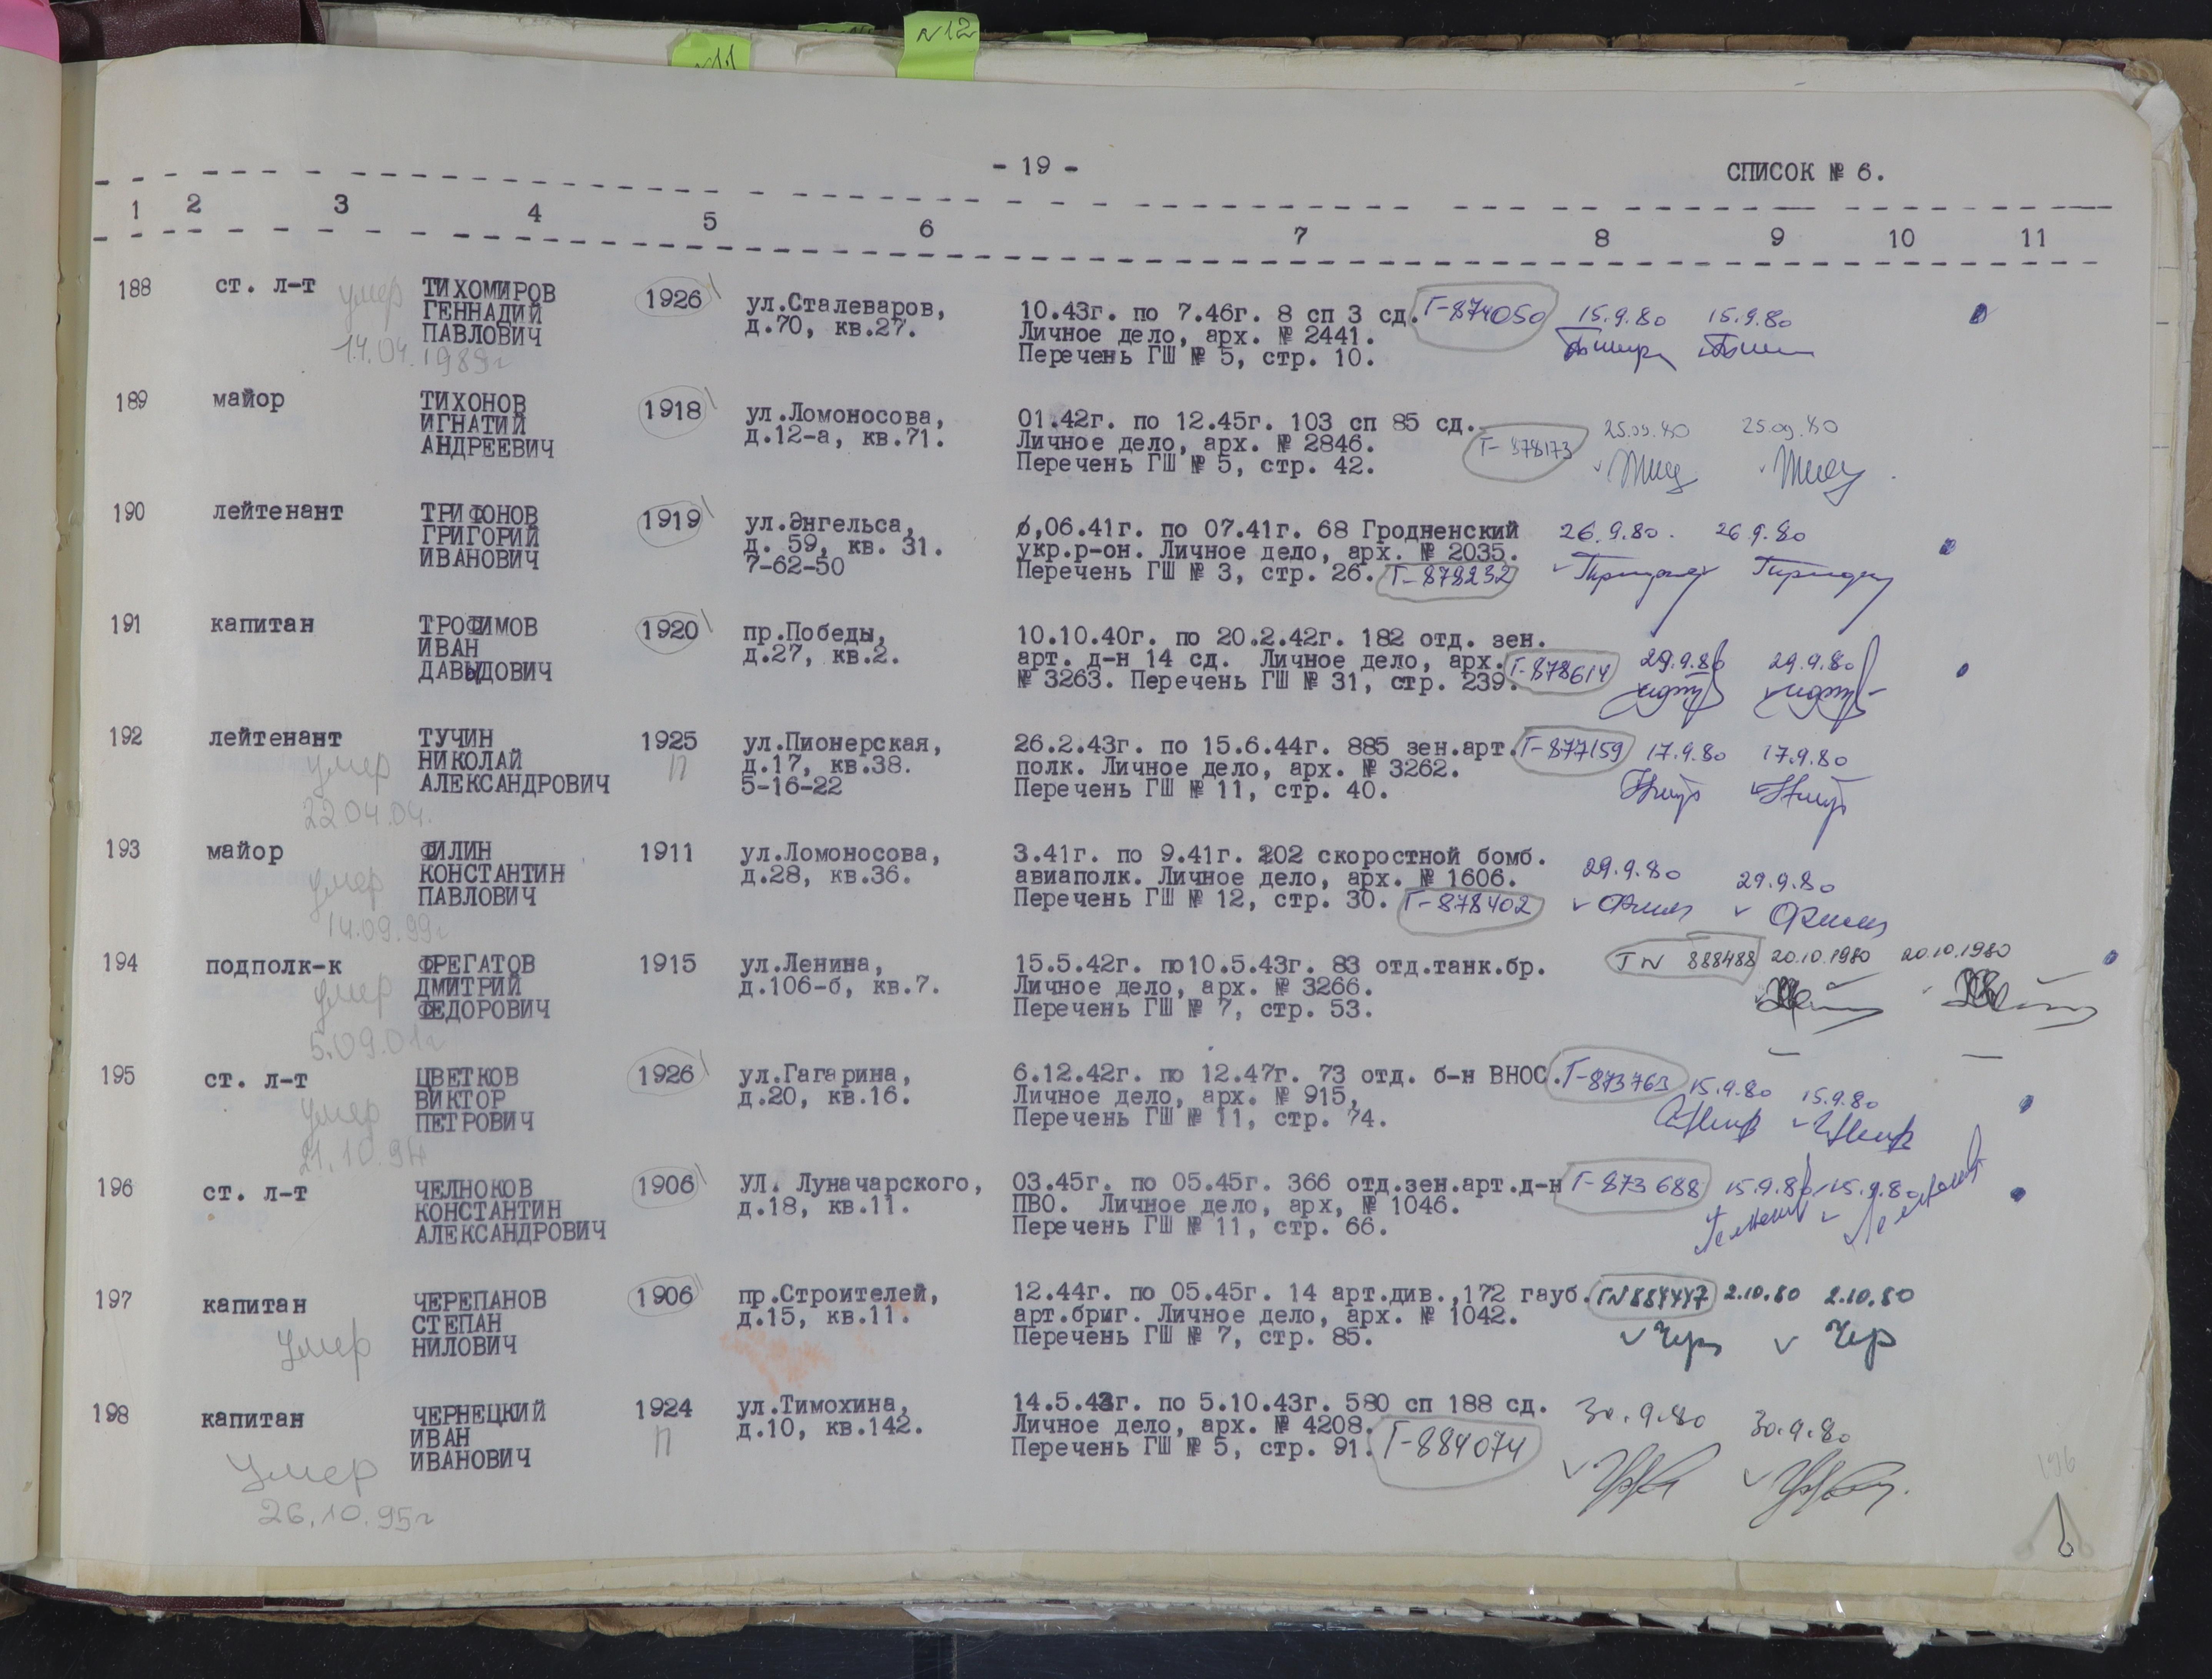 N12
- 19 -
СПИСОК № 6.
1 2 3 4 5 6 7 8 9 10 11
188 ст. л-т ТИХОМИРОВ 1926
умер ГЕННАДИЙ ул.Сталеваров, 10.43г. по 7.46г. 8 сп 3 сд. Г-874050 15.9.80 15.9.80
ПАВЛОВИЧ д.70, кв.27. Личное дело, арх. № 2441.
14.04.1989г Перечень ГШ № 5, стр. 10.
189 майор ТИХОНОВ 1918
ИГНАТИЙ ул.Ломоносова, 01.42г. по 12.45г. 103 сп 85 сд. 25.09.80 25.09.80
АНДРЕЕВИЧ д.12-а, кв.71. Личное дело, арх. № 2846. Г-878173
Перечень ГШ № 5, стр. 42.
190 лейтенант ТРИФОНОВ 1919
ГРИГОРИЙ ул.Энгельса, 06.41г. по 07.41г. 68 Гродненский 26.9.80. 26.9.80
ИВАНОВИЧ д. 59, кв. 31. укр.р-он. Личное дело, арх. № 2035.
7-62-50 Перечень ГШ № 3, стр. 26. Г-878232
191 капитан ТРОФИМОВ 1920
ИВАН пр.Победы, 10.10.40г. по 20.2.42г. 182 отд. зен.
ДАВЫДОВИЧ д.27, кв.2. арт. д-н 14 сд. Личное дело, арх. Г-878614 29.9.80 29.9.80
№ 3263. Перечень ГШ № 31, стр. 239.
192 лейтенант ТУЧИН 1925 ул.Пионерская, 26.2.43г. по 15.6.44г. 885 зен.арт. Г-877159 17.9.80 17.9.80
умер НИКОЛАЙ П д.17, кв.38. полк. Личное дело, арх. № 3262.
АЛЕКСАНДРОВИЧ 5-16-22 Перечень ГШ № 11, стр. 40.
22.04.04.
193 майор ФИЛИН 1911 ул.Ломоносова, 3.41г. по 9.41г. 202 скоростной бомб.
умер КОНСТАНТИН д.28, кв.36. авиаполк. Личное дело, арх. № 1606. 29.9.80 29.9.80
ПАВЛОВИЧ Перечень ГШ № 12, стр. 30. Г-878402
14.09.99г
194 подполк-к ФРЕГАТОВ 1915 ул.Ленина, 15.5.42г. по10.5.43г. 83 отд.танк.бр. ГN 888488 20.10.1980 20.10.1980
умер ДМИТРИЙ д.106-б, кв.7. Личное дело, арх. № 3266.
ФЕДОРОВИЧ Перечень ГШ № 7, стр. 53.
5.09.01г
195 ст. л-т ЦВЕТКОВ 1926 ул.Гагарина, 6.12.42г. по 12.47г. 73 отд. б-н ВНОС. Г-873763 15.9.80 15.9.80
умер ВИКТОР д.20, кв.16. Личное дело, арх. № 915,
ПЕТРОВИЧ Перечень ГШ № 11, стр. 74.
21.10.94
196 ст. л-т ЧЕЛНОКОВ 1906 УЛ. Луначарского, 03.45г. по 05.45г. 366 отд.зен.арт.д-н Г-873688 15.9.80 15.9.80
КОНСТАНТИН д.18, кв.11. ПВО. Личное дело, арх, № 1046.
АЛЕКСАНДРОВИЧ Перечень ГШ № 11, стр. 66.
197 капитан ЧЕРЕПАНОВ 1906 пр.Строителей, 12.44г. по 05.45г. 14 арт.див.,172 гауб. ГN884447 2.10.80 2.10.80
СТЕПАН д.15, кв.11. арт.бриг. Личное дело, арх. № 1042.
умер НИЛОВИЧ Перечень ГШ № 7, стр. 85. Чер Чер
198 капитан ЧЕРНЕЦКИЙ 1924 ул.Тимохина, 14.5.43г. по 5.10.43г. 580 сп 188 сд. 30.9.80 30.9.80
ИВАН П д.10, кв.142. Личное дело, арх. № 4208.
умер ИВАНОВИЧ Перечень ГШ № 5, стр. 91. Г-884074
26.10.95г
196